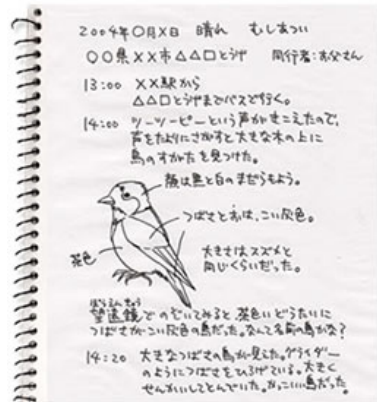 2004年〇月×日 晴れ むしあつい
〇〇県××市△△口とうげ 同行者:お父さん
13:00 ××駅から
△△口とうげまでバスで行く。
14:00 ツーツーピーという声がきこえたので、
声をたよりにさがすと大きな木の上に
鳥のすがたを見つけた。
顔は黒と白のまだらもよう。
つばさとおは、こい灰色。
茶色
大きさはスズメと
同じくらいだった。
ぼうえんきょう
望遠鏡でのぞいてみると、茶色いどうたいに
つばさがこい灰色の鳥だった。なんて名前の鳥かな?
14:20 大きなつばさの鳥が見えた。グライダー
のようにつばさをひろげている。大きく
せんかいしてとんでいた。かっこいい鳥だった。